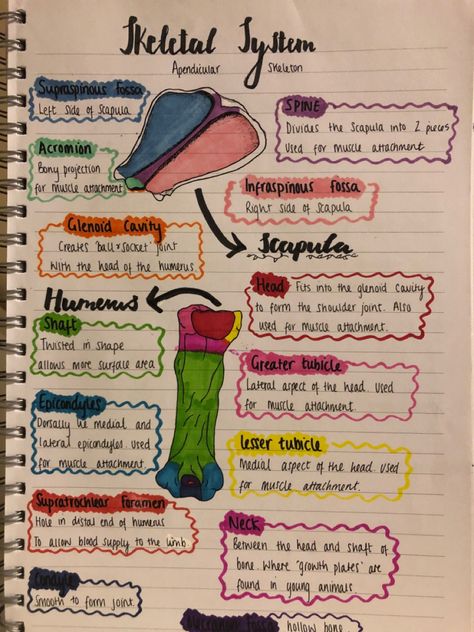 Skeletal System
Apendicular Skeleton
Supraspinous fossa
Left side of Scapula
SPINE
Divides the Scapula into 2 pieces
Used for muscle attachment
Acromion
Bony projection
for muscle attachment
Infraspinous fossa
Right side of Scapula
Glenoid Cavity
Creates 'ball & socket' joint
With the head of the humerus
Scapula
Humerus
Head Fits into the glenoid cavity
to form the shoulder joint. Also
used for muscle attachment.
Shaft
Twisted in shape
allows more surface area
Greater tubicle
Lateral aspect of the head. Used
for muscle attachment.
Epicondyles
Dorsally lie medial and
lateral epicondyles. Used
for muscle attachment
lesser tubicle
Medial aspect of the head. used
for muscle attachment.
Supratrochlear foramen
Hole in distal end of humerus
To allow blood supply to the limb.
Neck
Between the head and shaft of
bone. Where 'growth plates' are
found in young animals.
Condyle
Smooth to form joint.
fossa hollow bone